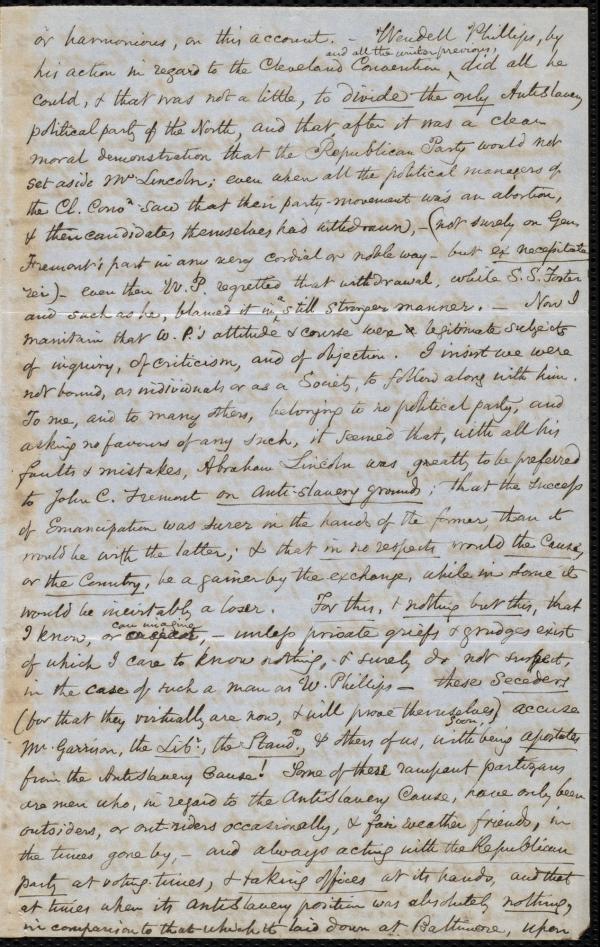 or harmonious, on this account. – Wendell Phillips, by
and all the winter previous,
his action in regard to the Cleveland Convention ^ did all he
could, & that was not a little, to divide the only Antislavery
political party of the North, and that after it was a clear
moral demonstration that the Republican Party would not
set aside Mr. Lincoln; even when all the political managers of
the Cl. Convn. saw that their party-movement was an abortion,
& their candidates themselves had withdrawn, – (not surely on Genl.
Fremont's part in any very cordial or noble way – but ex necessitate
rei) – even then W. P. regretted that withdrawal, while S. S. Foster
and such as he, blamed it in ^a still stronger manner. – Now I
maintain that W. P.'s attitude & course were legitimate subjects
of inquiry, of criticism, and of objection. I insist we were
not bound, as individuals or as a Society, to follow along with him.
To me, and to many others, belonging to no political party, and
asking no favours of any such, it seemed that, with all his
faults & mistakes, Abraham Lincoln was greatly to be preferred
to John C. Fremont on Anti-slavery grounds; that the success
of Emancipation was surer in the hands of the former, than it
would be with the latter; & that in no respects would the Cause,
or the Country, be a gainer by the exchange, while in some it
would be inevitably a loser. For this, & nothing but this, that
can imagine
I know, or, – unless private griefs & grudges exist
of which I care to know nothing, & surely do not suspect,
in the case of such a man as W. Phillips – these Seceders
(for that they virtually are now, & will prove themselves soon,) accuse
Mr. Garrison, the Libr., the Standd., & others of us, with being apostates
from the Antislavery Cause! Some of these rampant partizans
are men who, in regard to the Antislavery Cause, have only been
outsiders, or out-riders occasionally, & fair weather friends, in
the times gone by, – and always acting with the Republican
party at voting-times, & taking offices at its hands, and that
at times when its Antislavery position was absolutely nothing,
in comparison to that which it laid down at Baltimore, upon